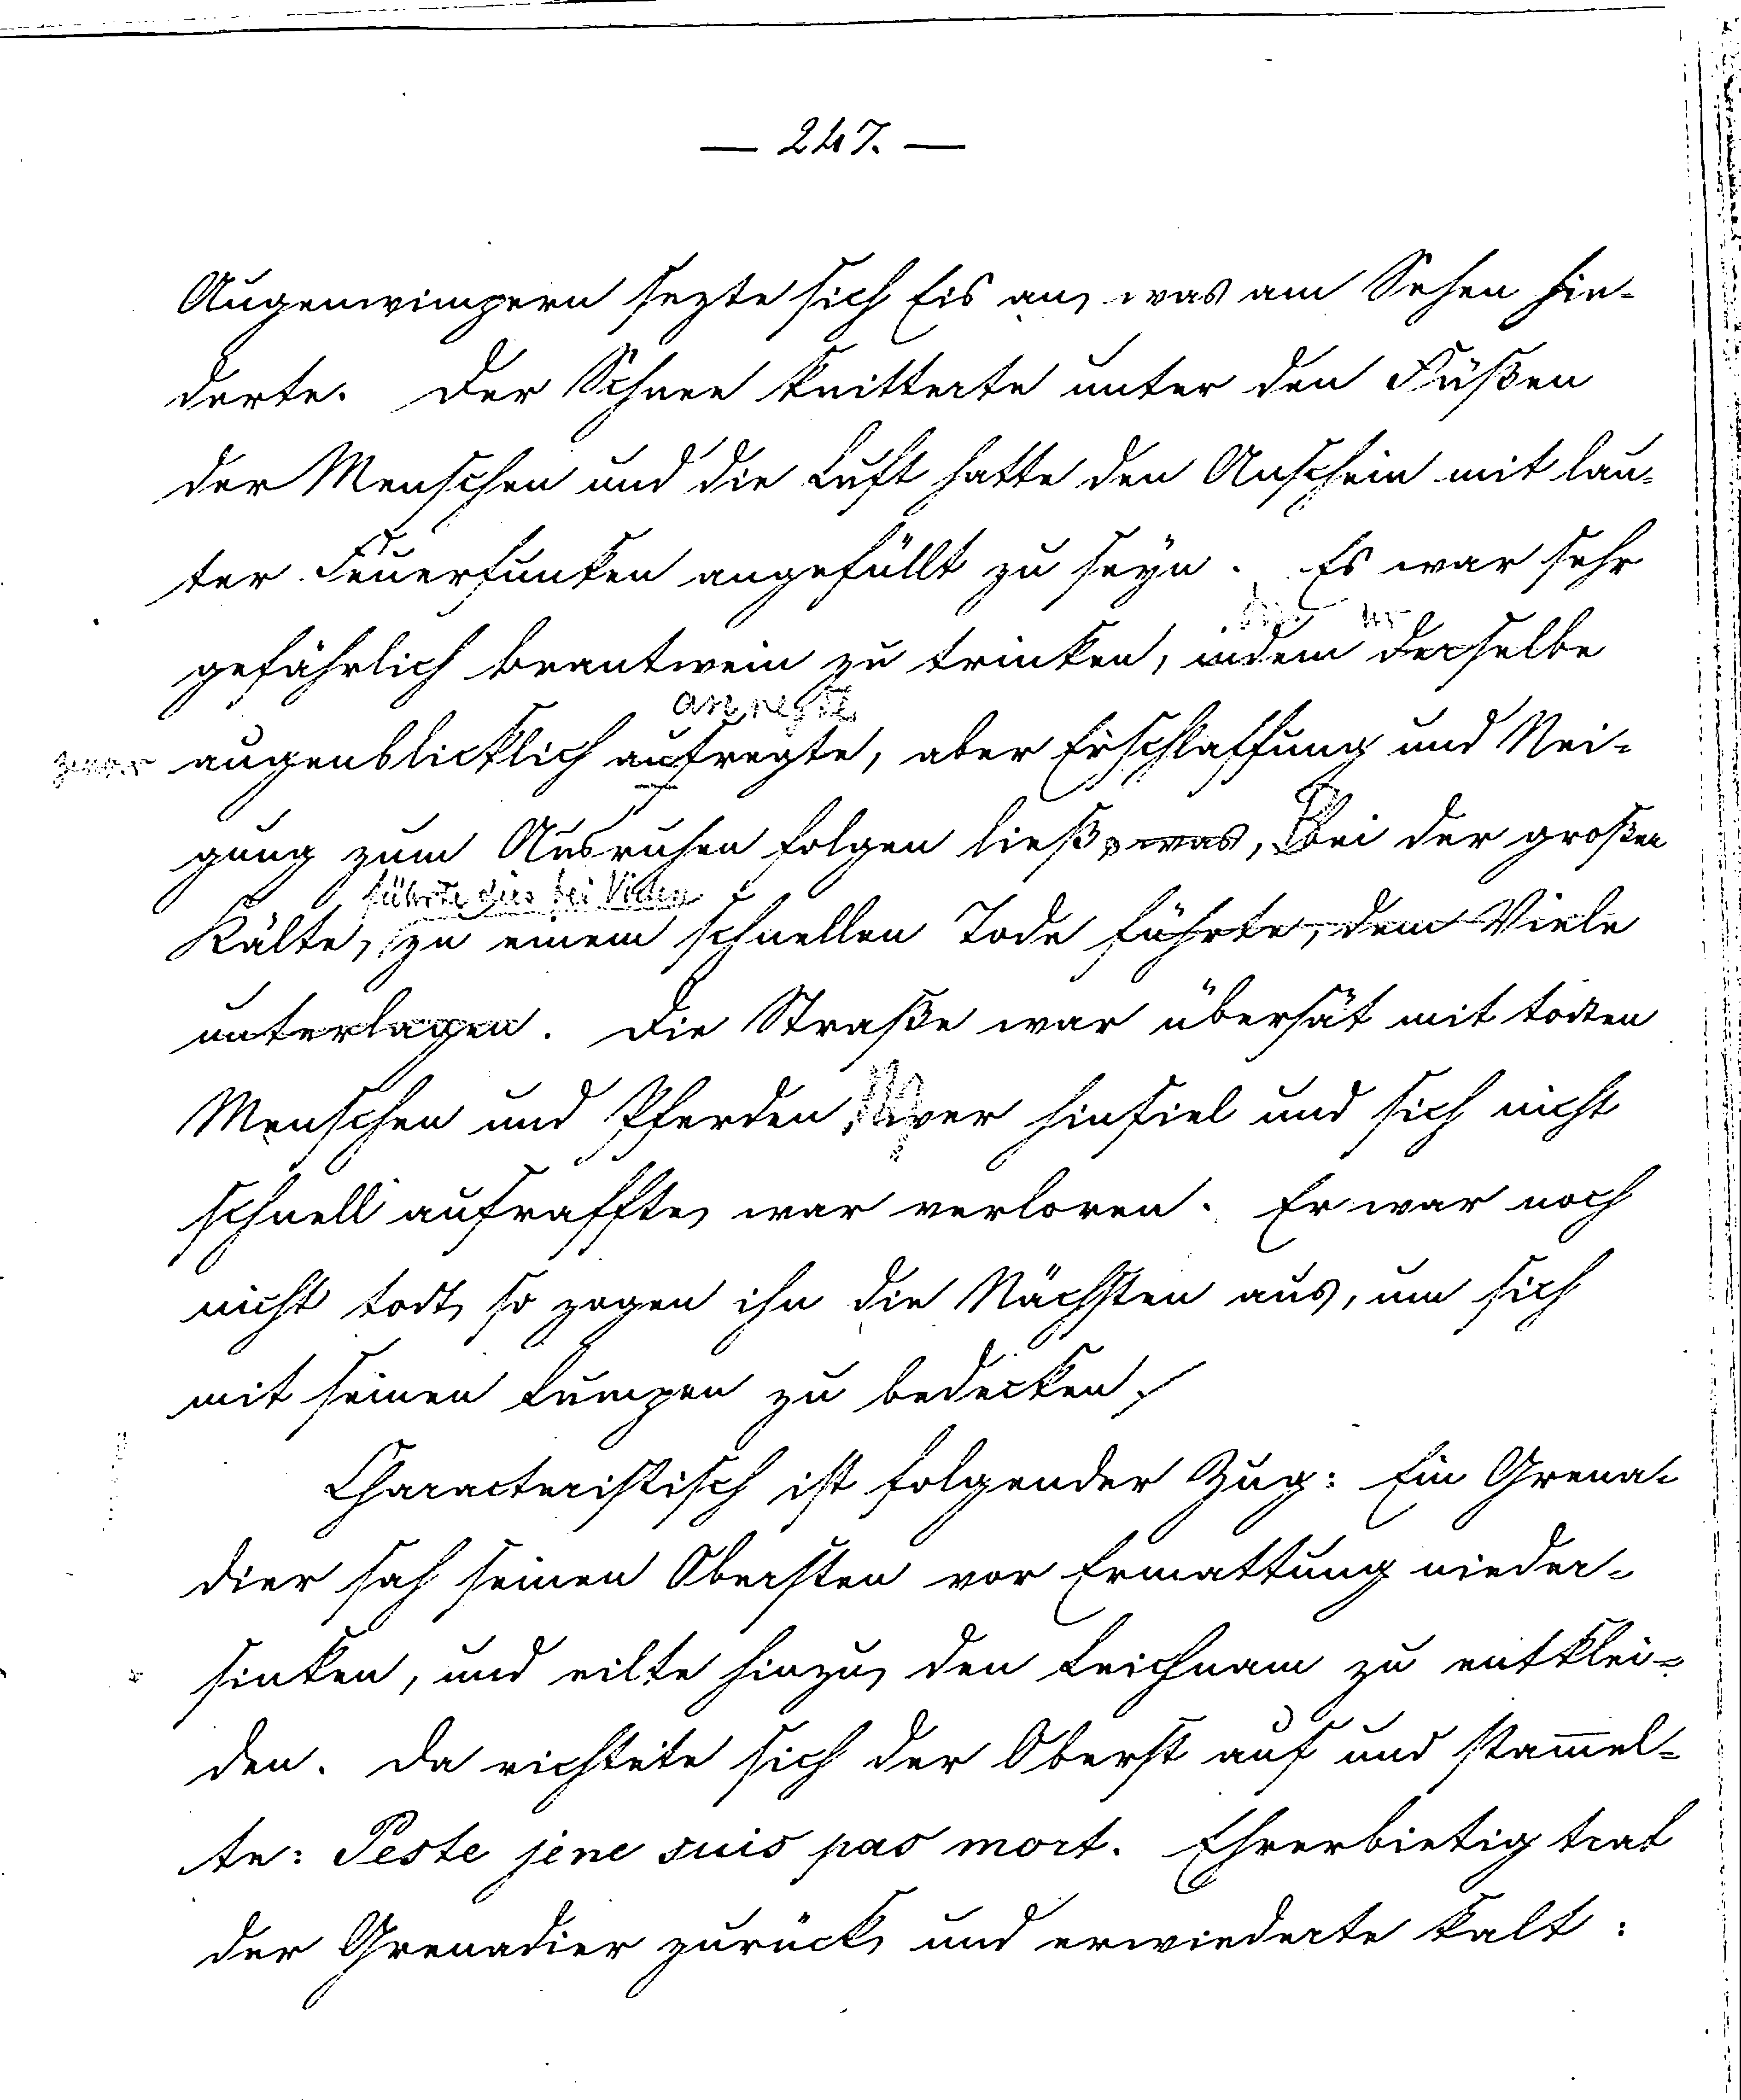 — 247. —
Augenwimpern sezte sich Eis an, was am Sehen hin-
derte. Der Schnee knitterte unter den Füßen
der Menschen und die Luft hatte den Anschein mit lau-
ter Feuerfunken angefüllt zu seyn. Es war sehr
gefährlich Brantwein zu trinken, indem derselbe
anregte
zwar augenblicklich aufregte, aber Erschlaffung und Nei-
gung zum Ausruhen folgen ließ, was, Bei der großen
führte dies bei Vielen
Kälte, zu einem schnellen Tode führte, dem Viele
unterlagen. Die Straße war übersät mit todten
Menschen und Pferden, wer hinfiel und sich nicht
schnell aufraffte, war verloren. Er war noch
nicht todt, so zogen ihn die Nächsten aus, um sich
mit seinen Lumpen zu bedecken.
Characteristisch ist folgender Zug: Ein Grena-
dier sah seinen Obersten vor Ermattung nieder-
sinken, und eilte hinzu, den Leichnam zu entklei-
den. Da richtete sich der Oberst auf und stam̅el-
te: Peste je ne suis pas mort. Ehrerbietig trat
der Grenadier zurück, und erwiederte kalt: